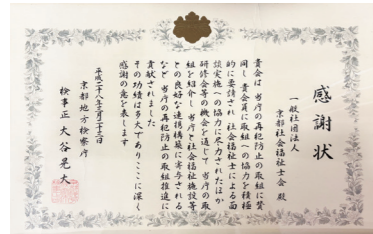 感謝状
一般社団法人
京都社会福祉士会 殿
貴会は 当庁の再犯防止の取組に賛
同し 貴会員に取組への協力を積極
的に要請され 社会福祉士による面
談実施への協力に尽力されたほか
研修会等の機会を通じて 当庁の取
組を紹介し 当庁と社会福祉施設等
との良好な連携構築に寄与される
など 当庁の再犯防止の取組推進に
貢献されました
その功績は多大でありここに深く
感謝の意を表します
平成二十八年六月二十三日
京都地方検察庁
検事正 大谷晃大